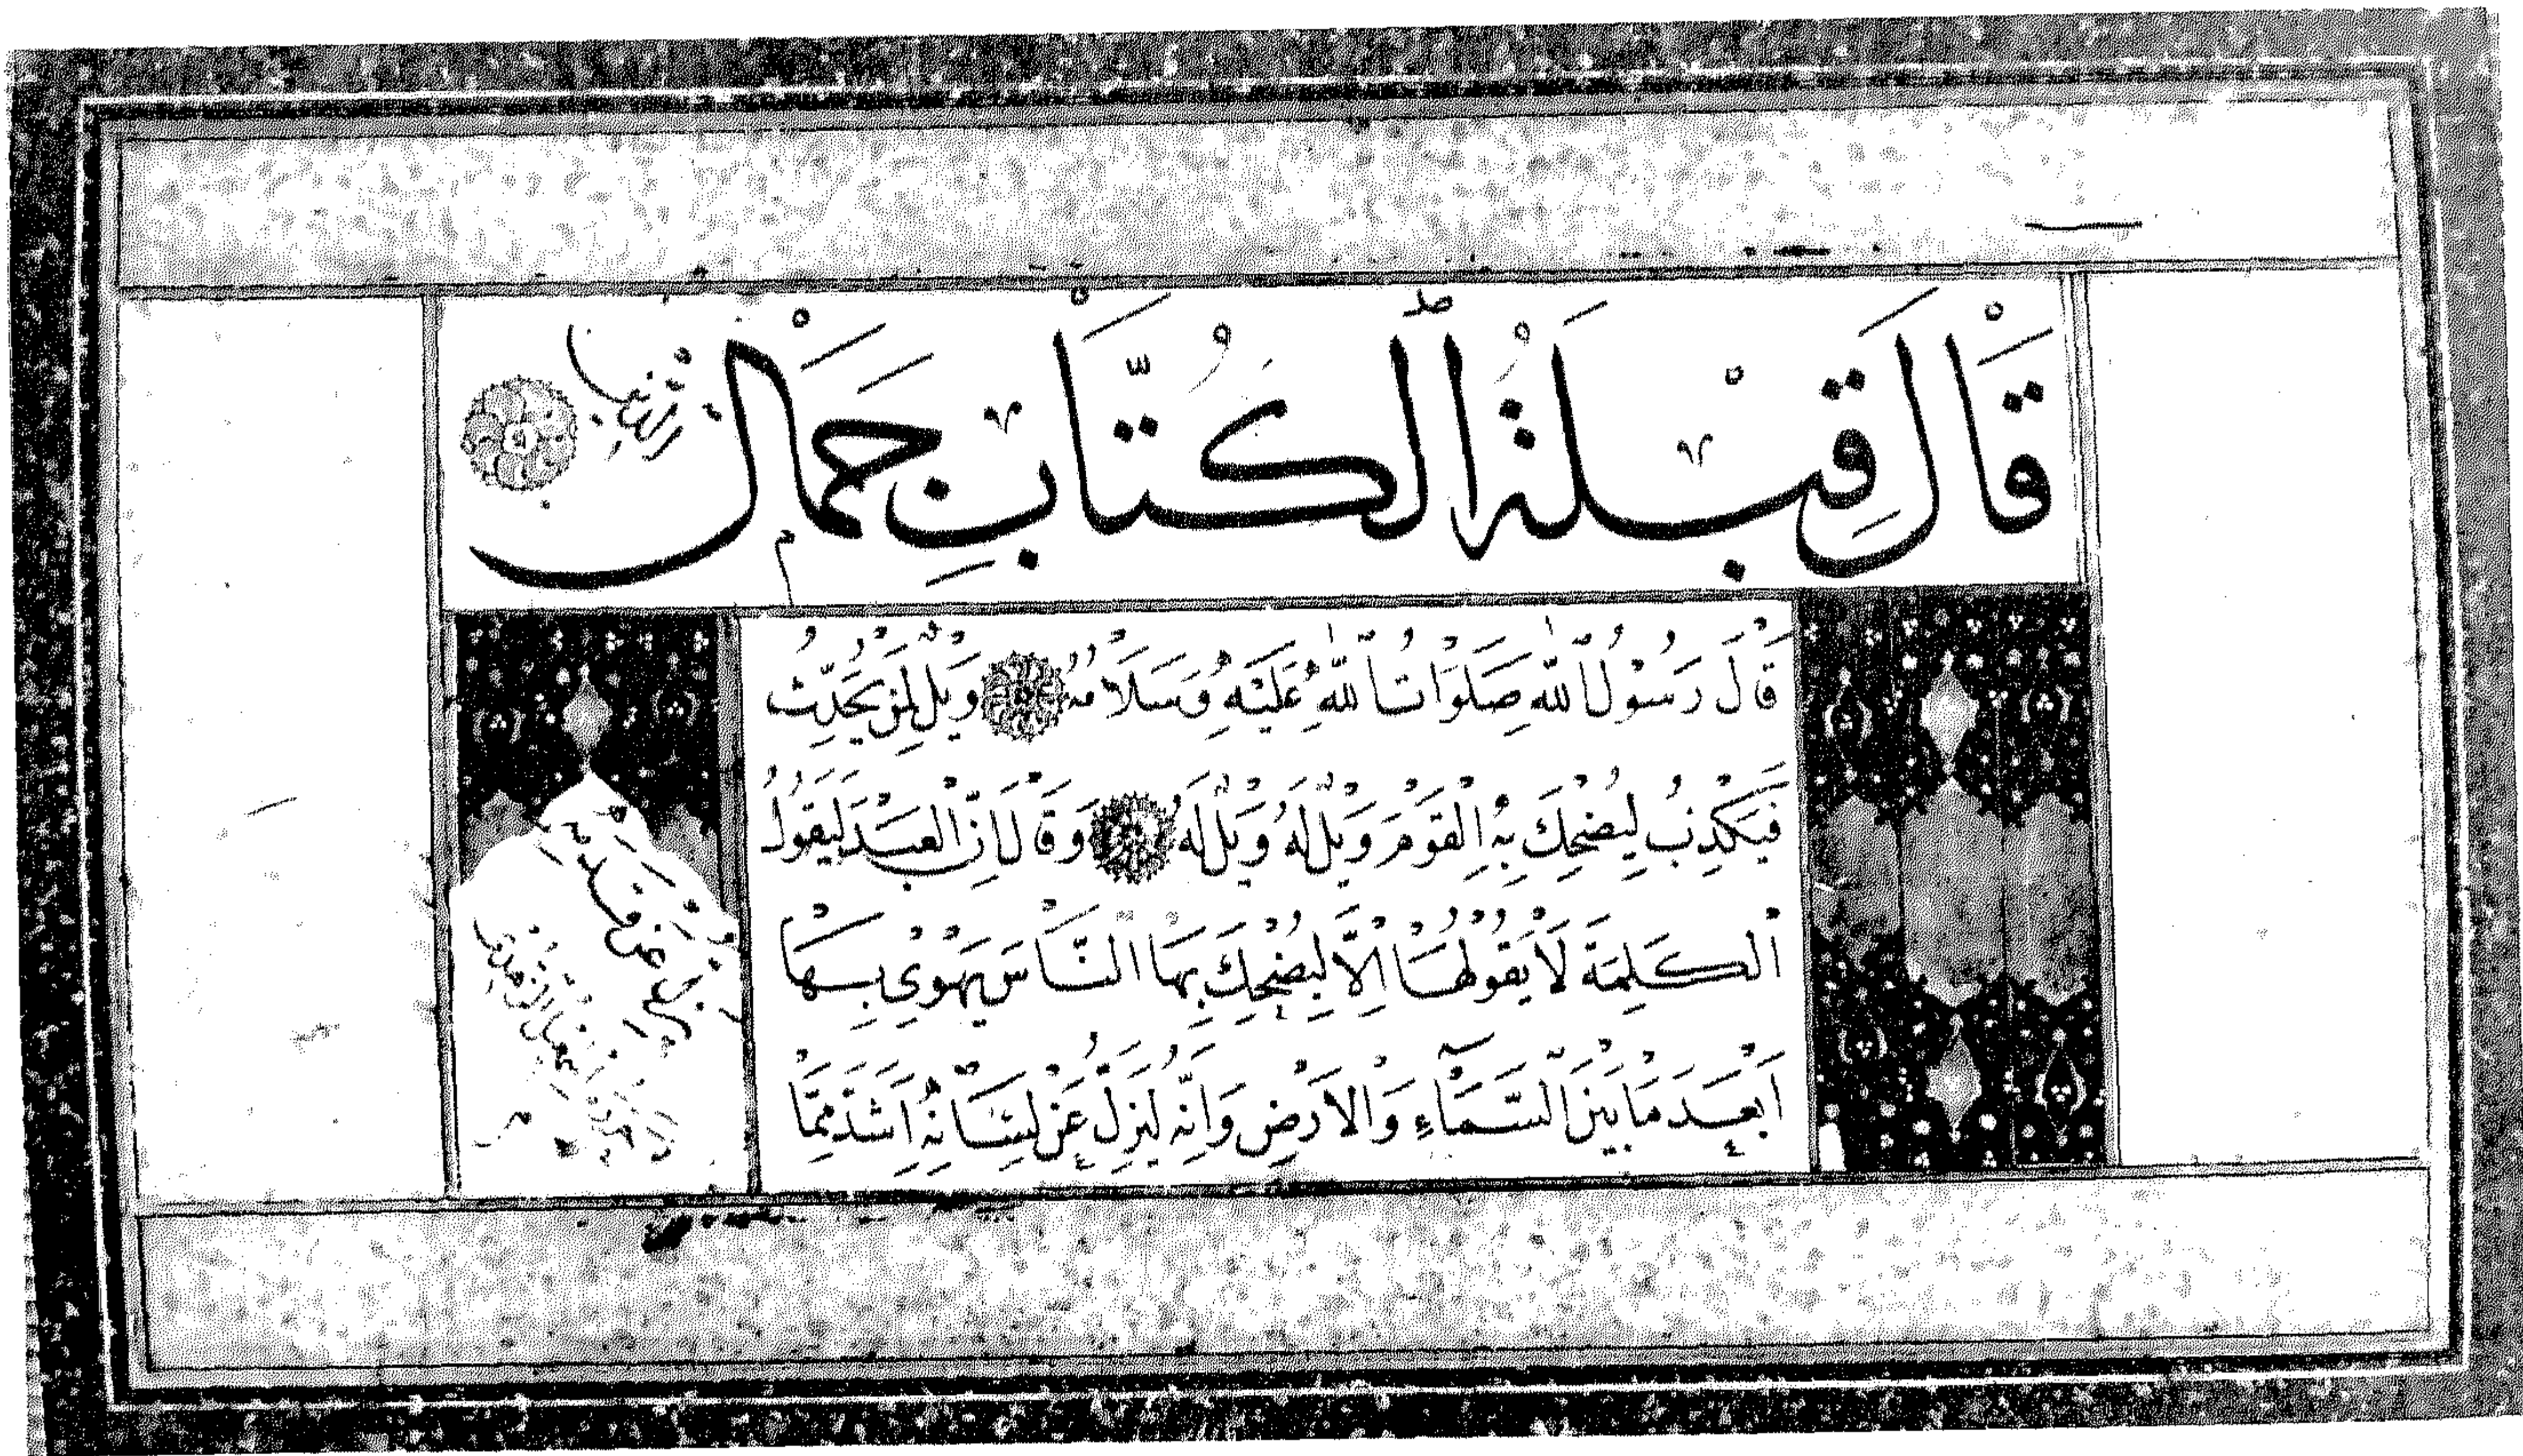 قَالَ قِبْلَةُ الْكُتَّابِ جَمَال
قَالَ رَسُوْلُ اللهِ صَلَوَاتُ اللهِ عَلَيْهِ وَسَلَامُهُ وَيْلٌ لِمَنْ يُحَدِّثُ
فَيَكْذِبُ لِيُضْحِكَ بِهِ الْقَوْمَ وَيْلٌ لَهُ وَيْلٌ لَهُ وَقَالَ اِنَّ الْعَبْدَ لَيَقُوْلُ
الْكَلِمَةَ لَا يَقُوْلُهَا اِلَّا لِيُضْحِكَ بِهَا النَّاسَ يَهْوِيْ بِهَا
اَبْعَدَ مَا بَيْنَ السَّمَآءِ وَالْاَرْضِ وَاِنَّهُ لَيَزِلُّ عَنْ لِسَانِهِ اَشَدَّ مِمَّا